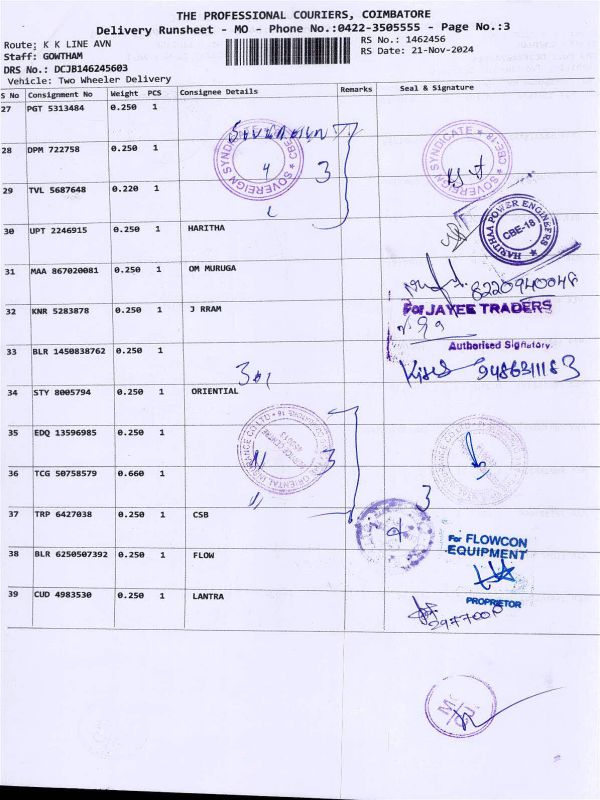 THE PROFESSIONAL COURIERS, COIMBATORE
Delivery Runsheet - MO - Phone No.:0422-3505555 - Page No.:3
Route; K K LINE AVN
RS No.: 1462456
Staff: GOWTHAM
RS Date: 21-Nov-2024
DRS No.: DCJB146245603
Vehicle: Two Wheeler Delivery
S No Consignment No Weight PCS Consignee Details Remarks Seal & Signature
27 PGT 5313484 0.250 1
28 DPM 722758 0.250 1
SOVEREIGN SYNDICATE ★ CBE-18 ★
3
SOVEREIGN SYNDICATE ★ CBE-18 ★
29 TVL 5687648 0.220 1
30 UPT 2246915 0.250 1 HARITHA
HARITHAA POWER ENGINEERS
CBE-18
31 MAA 867020081 0.250 1 OM MURUGA
8220940048
32 KNR 5283878 0.250 1 J RRAM
For JAYEE TRADERS
Authorised Signatory.
33 BLR 1450838762 0.250 1
9486311183
34 STY 8005794 0.250 1 ORIENTIAL
35 EDQ 13596985 0.250 1
3
36 TCG 50758579 0.660 1
3
37 TRP 6427038 0.250 1 CSB
For FLOWCON
EQUIPMENT
38 BLR 6250507392 0.250 1 FLOW
PROPRIETOR
39 CUD 4983530 0.250 1 LANTRA